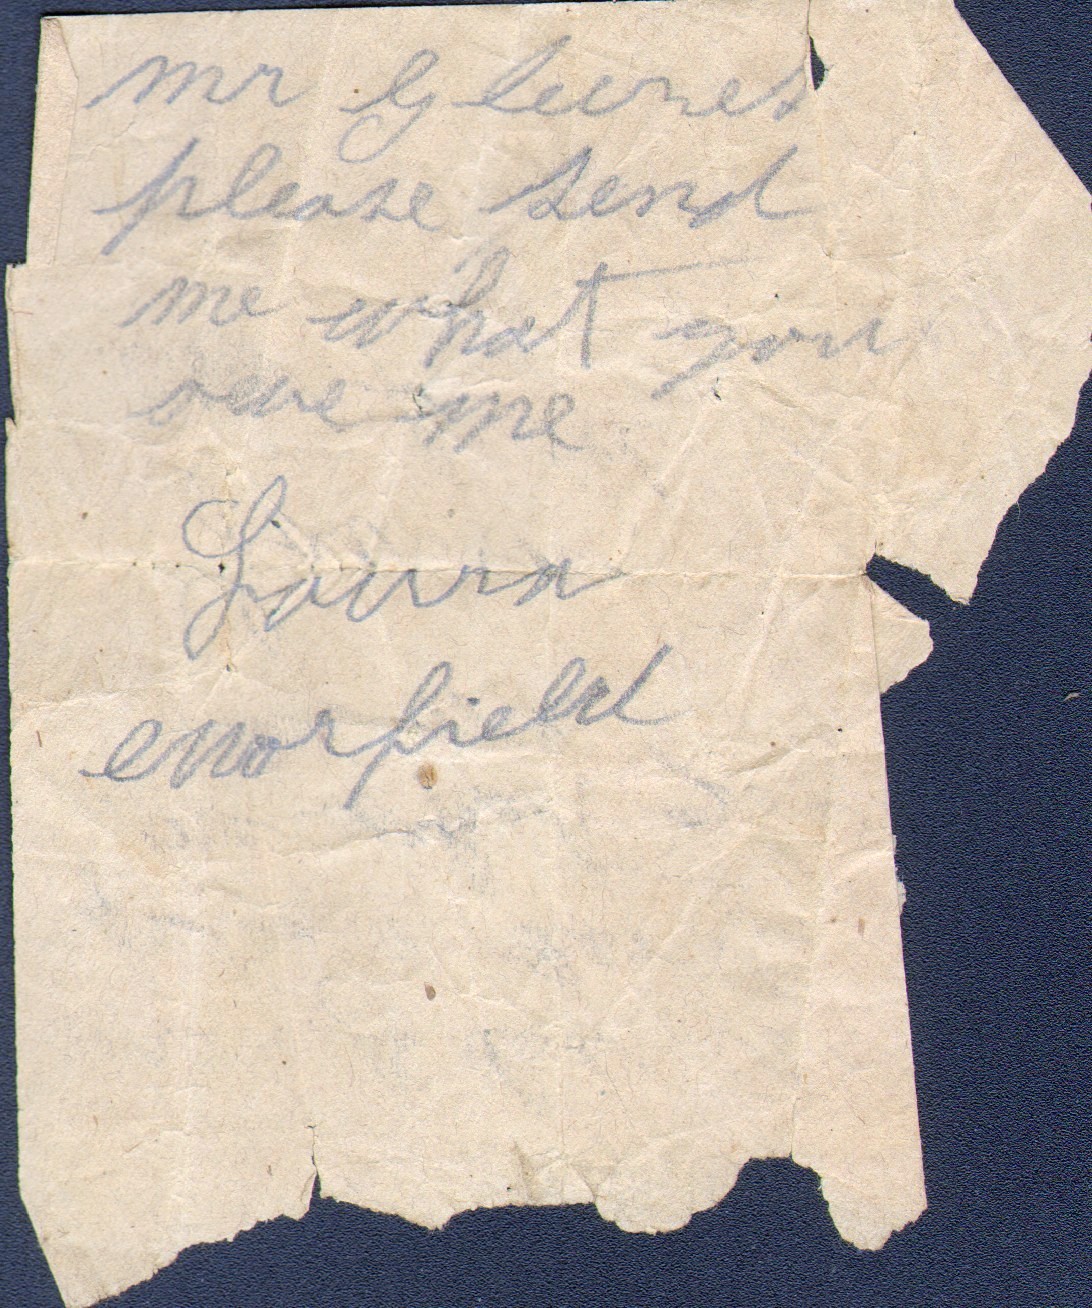 mr G
please send
me what you
owe me
Laura
enorfield